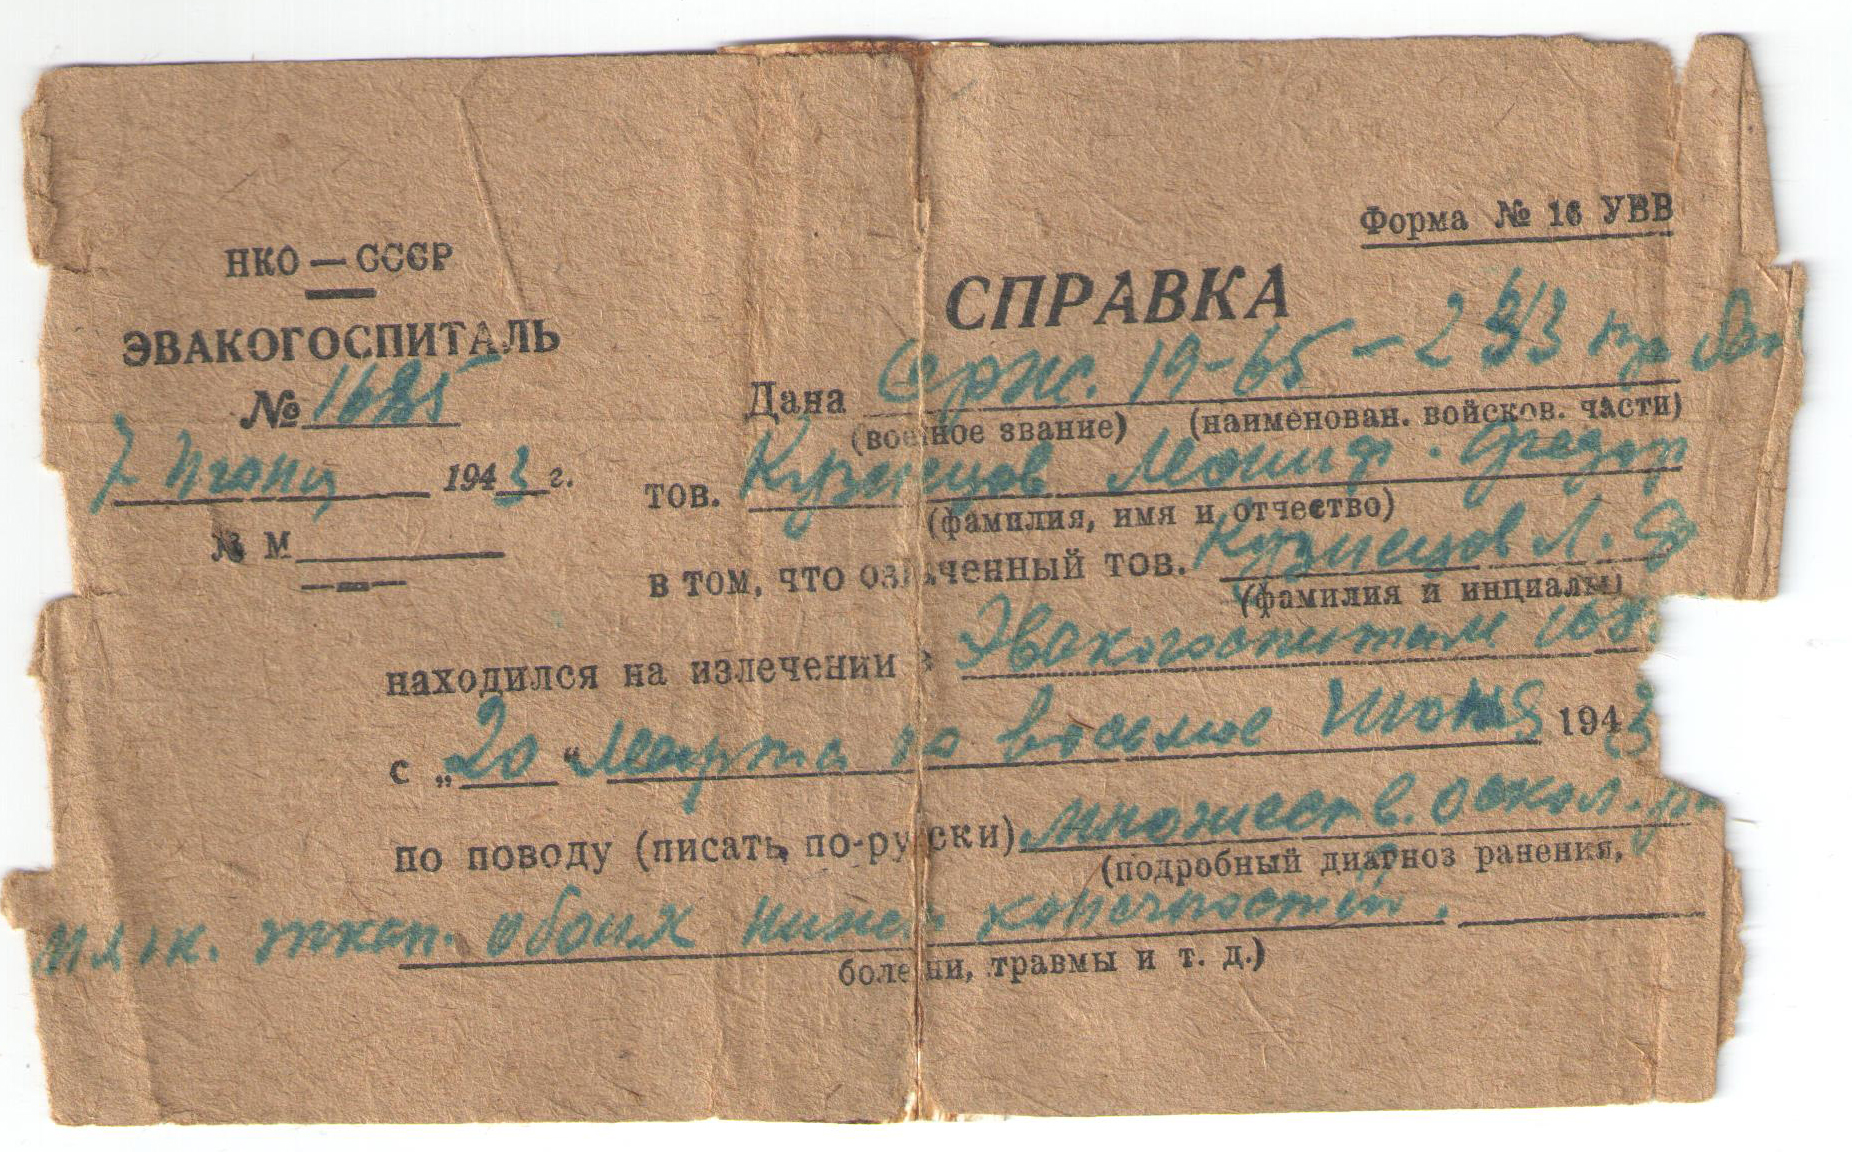 Форма № 16 УВВ
НКО — СССР
ЭВАКОГОСПИТАЛЬ
№ 1685
7 Июня 1943 г.
№ М
СПРАВКА
Дана Серж. 19-65 -
(военное звание) (наименован. войсков. части)
тов. Кузнецов Леонид. Федор
(фамилия, имя и отчество)
в том, что означенный тов. Кузнецов Л. Ф
(фамилия и инциалы)
находился на излечении в Эвакогоспитале 168
с „20 “ Марта по восьмое Июня 1943
по поводу (писать по-русски) множеств. оскол.
(подробный диагноз ранения,
мягк. ткан. обоих нижн. конечностей.
болезни, травмы и т. д.)